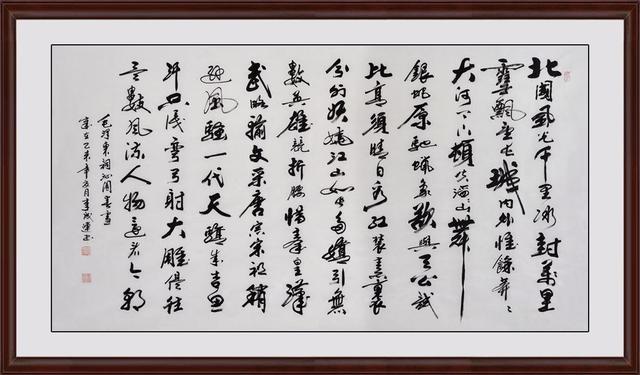 北國風光千里冰封萬里
雪飄望長城内外惟餘莽〻
大河上下頓失滔〻山舞
銀蛇原馳蠟象欲與天公試
比高須晴日看紅裝素裹
分外妖嬈江山如此多嬌引無
數英雄競折腰惜秦皇漢
武略輸文采唐宗宋祖稍
遜風騷一代天驕成吉思
汗只識彎弓射大雕俱往
矣數風流人物還看今朝
毛澤東詞沁園春雪
歲在乙未年五月李成